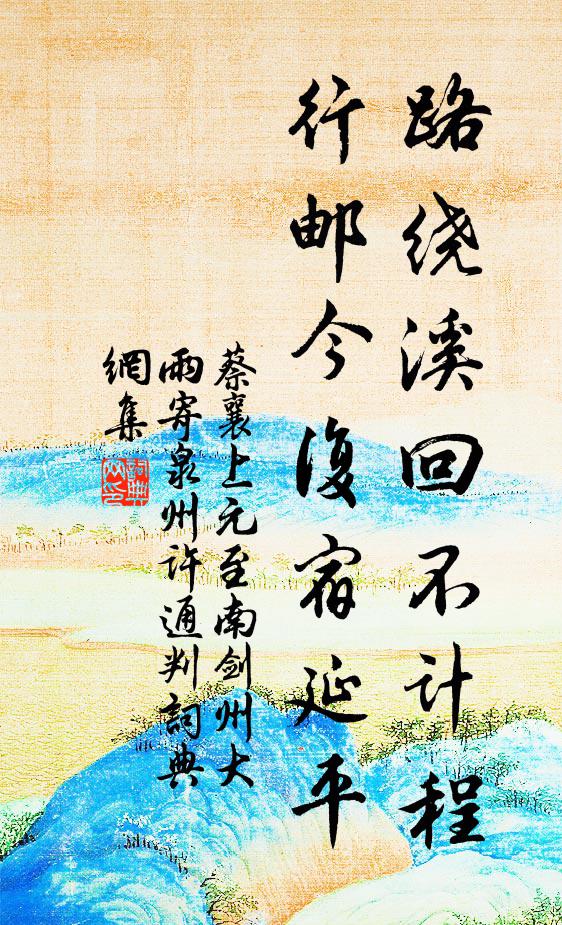 路绕溪回不计程
行邮今复宿延平
蔡襄上元至南剑州大
雨寄泉州许通判詞典
網集
詞典
网印